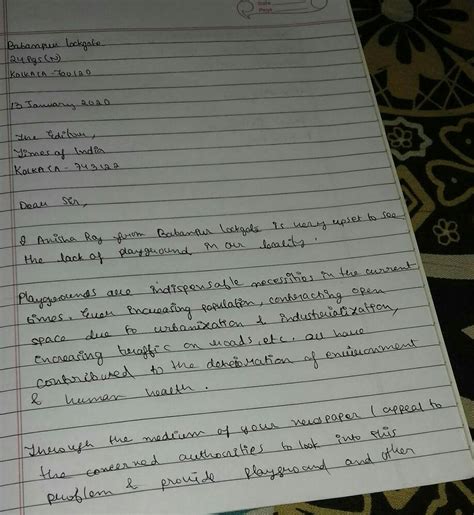 Date
Page
Babanpur Lockgate
24 Pgs (N)
KOLKATA - 700120
13 January 2020
The Editor,
Times of India
KOLKATA - 743122
Dear Sir,
I Anisha Roy from Babanpur Lockgate is very upset to see
the lack of playground in our locality.
Playgrounds are indispensable necessities in the current
times. Ever increasing population, contracting open
space due to urbanization & industrialization,
encreasing traffic on roads, etc. all have
contributed to the deterioration of environment
& human health.
Through the medium of your newspaper I appeal to
the concerned authorities to look into this
problem & provide playground and other